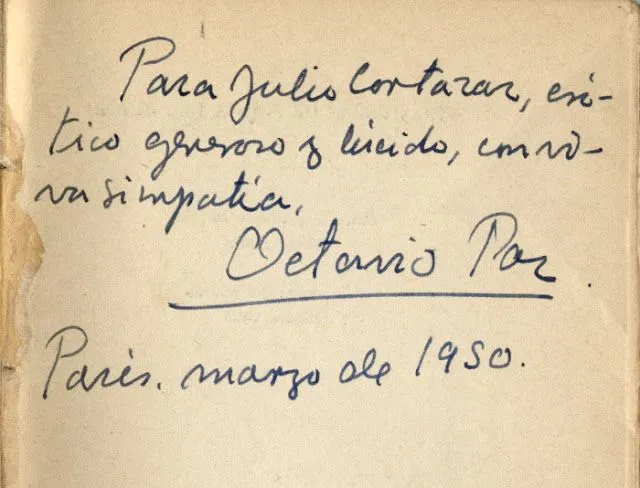 Para Julio Cortazar, crí-
tico generoso y lúcido, con vi-
va simpatía,
Octavio Paz
París. marzo de 1950.